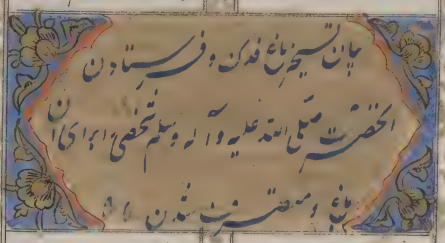 بیان تسخیر باغ فدک و فرستادن
آنحضرت صلی الله علیه و آله وسلم شخصی را برای آن
باغ و متصرف شدن